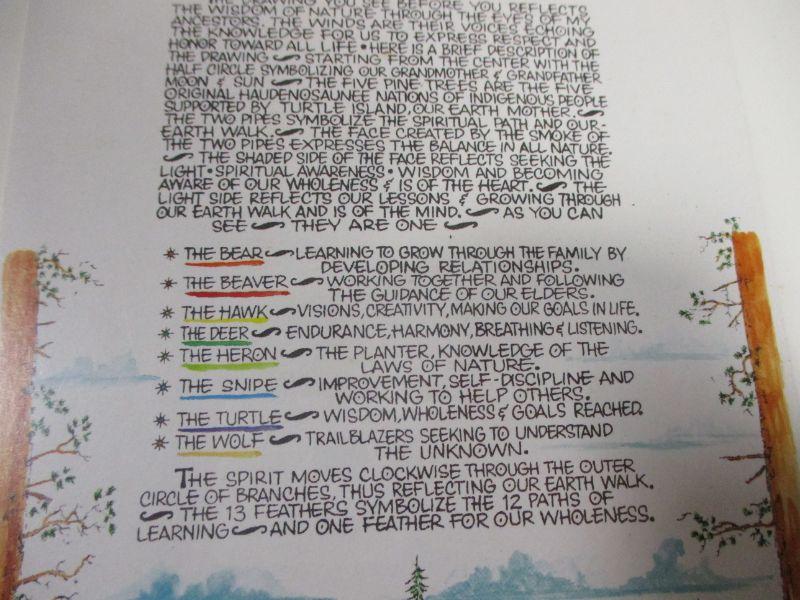 THE DRAWING YOU SEE BEFORE YOU REFLECTS
THE WISDOM OF NATURE THROUGH THE EYES OF MY
ANCESTORS. THE WINDS ARE THEIR VOICES ECHOING
THE KNOWLEDGE FOR US TO EXPRESS RESPECT AND
HONOR TOWARD ALL LIFE • HERE IS A BRIEF DESCRIPTION OF
THE DRAWING ~ STARTING FROM THE CENTER WITH THE
HALF CIRCLE SYMBOLIZING OUR GRANDMOTHER & GRANDFATHER
MOON & SUN ~ THE FIVE PINE TREES ARE THE FIVE
ORIGINAL HAUDENOSAUNEE NATIONS OF INDIGENOUS PEOPLE
SUPPORTED BY TURTLE ISLAND, OUR EARTH MOTHER. ~
THE TWO PIPES SYMBOLIZE THE SPIRITUAL PATH AND OUR-
EARTH WALK. ~ THE FACE CREATED BY THE SMOKE OF
THE TWO PIPES EXPRESSES THE BALANCE IN ALL NATURE.
~ THE SHADED SIDE OF THE FACE REFLECTS SEEKING THE
LIGHT • SPIRITUAL AWARENESS • WISDOM AND BECOMING
AWARE OF OUR WHOLENESS & IS OF THE HEART. ~ THE
LIGHT SIDE REFLECTS OUR LESSONS & GROWING THROUGH
OUR EARTH WALK AND IS OF THE MIND. ~ AS YOU CAN
SEE ~ THEY ARE ONE ~
* THE BEAR ~ LEARNING TO GROW THROUGH THE FAMILY BY
DEVELOPING RELATIONSHIPS.
* THE BEAVER ~ WORKING TOGETHER AND FOLLOWING
THE GUIDANCE OF OUR ELDERS.
* THE HAWK ~ VISIONS, CREATIVITY, MAKING OUR GOALS IN LIFE.
* THE DEER ~ ENDURANCE, HARMONY, BREATHING & LISTENING.
* THE HERON ~ THE PLANTER, KNOWLEDGE OF THE
LAWS OF NATURE.
* THE SNIPE ~ IMPROVEMENT, SELF-DISCIPLINE AND
WORKING TO HELP OTHERS.
* THE TURTLE ~ WISDOM, WHOLENESS & GOALS REACHED.
* THE WOLF ~ TRAILBLAZERS SEEKING TO UNDERSTAND
THE UNKNOWN.
THE SPIRIT MOVES CLOCKWISE THROUGH THE OUTER
CIRCLE OF BRANCHES, THUS REFLECTING OUR EARTH WALK.
~ THE 13 FEATHERS SYMBOLIZE THE 12 PATHS OF
LEARNING ~ AND ONE FEATHER FOR OUR WHOLENESS.